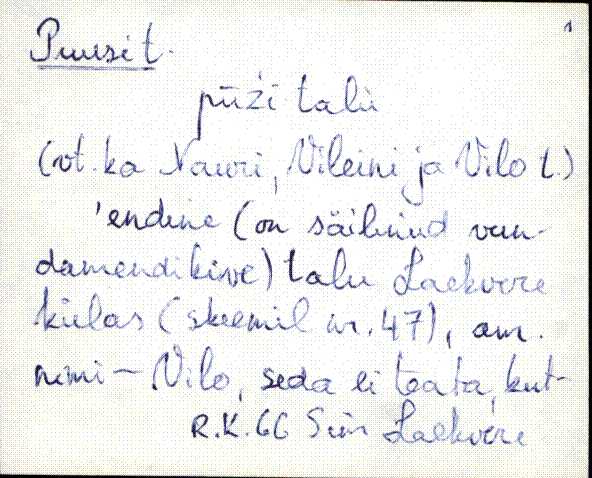 1
Puusi t.
pūži talu
(vt. ka Nauri, Vileini ja Vilo t.)
'endine (on säilinud vun-
damendikive) talu Laekvere
külas (skeemil nr. 47), am.
nimi – Vilo, seda ei teata, kut-
R.K. 66 Sim Laekvere